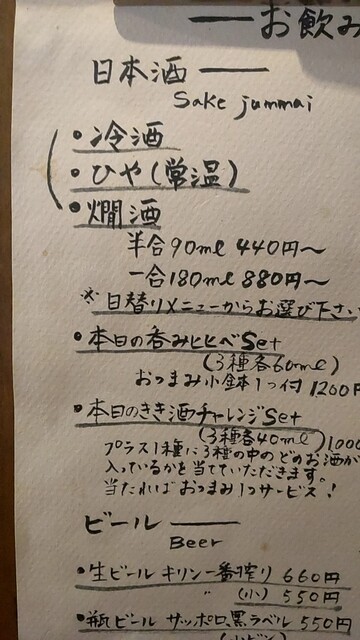 お飲み
日本酒
Sake jummai
・冷酒
・ひや(常温)
・燗酒
半合90ml 440円〜
一合180ml 880円〜
※日替りメニューからお選び下さい
・本日の呑みヒヒベSet
(3種各60ml)
おつまみ小鉢1つ付 1200円
・本日のきき酒チャレンジSet
(3種各40ml) 1000
プラス1種に3種の中のどのお酒が
入っているかを当てていただきます。!
当たればおつまみ1つサービス!
ビール
Beer
・生ビール キリン一番搾り 660円
〃 (小) 550円
・瓶ビール サッポロ黒ラベル 550円